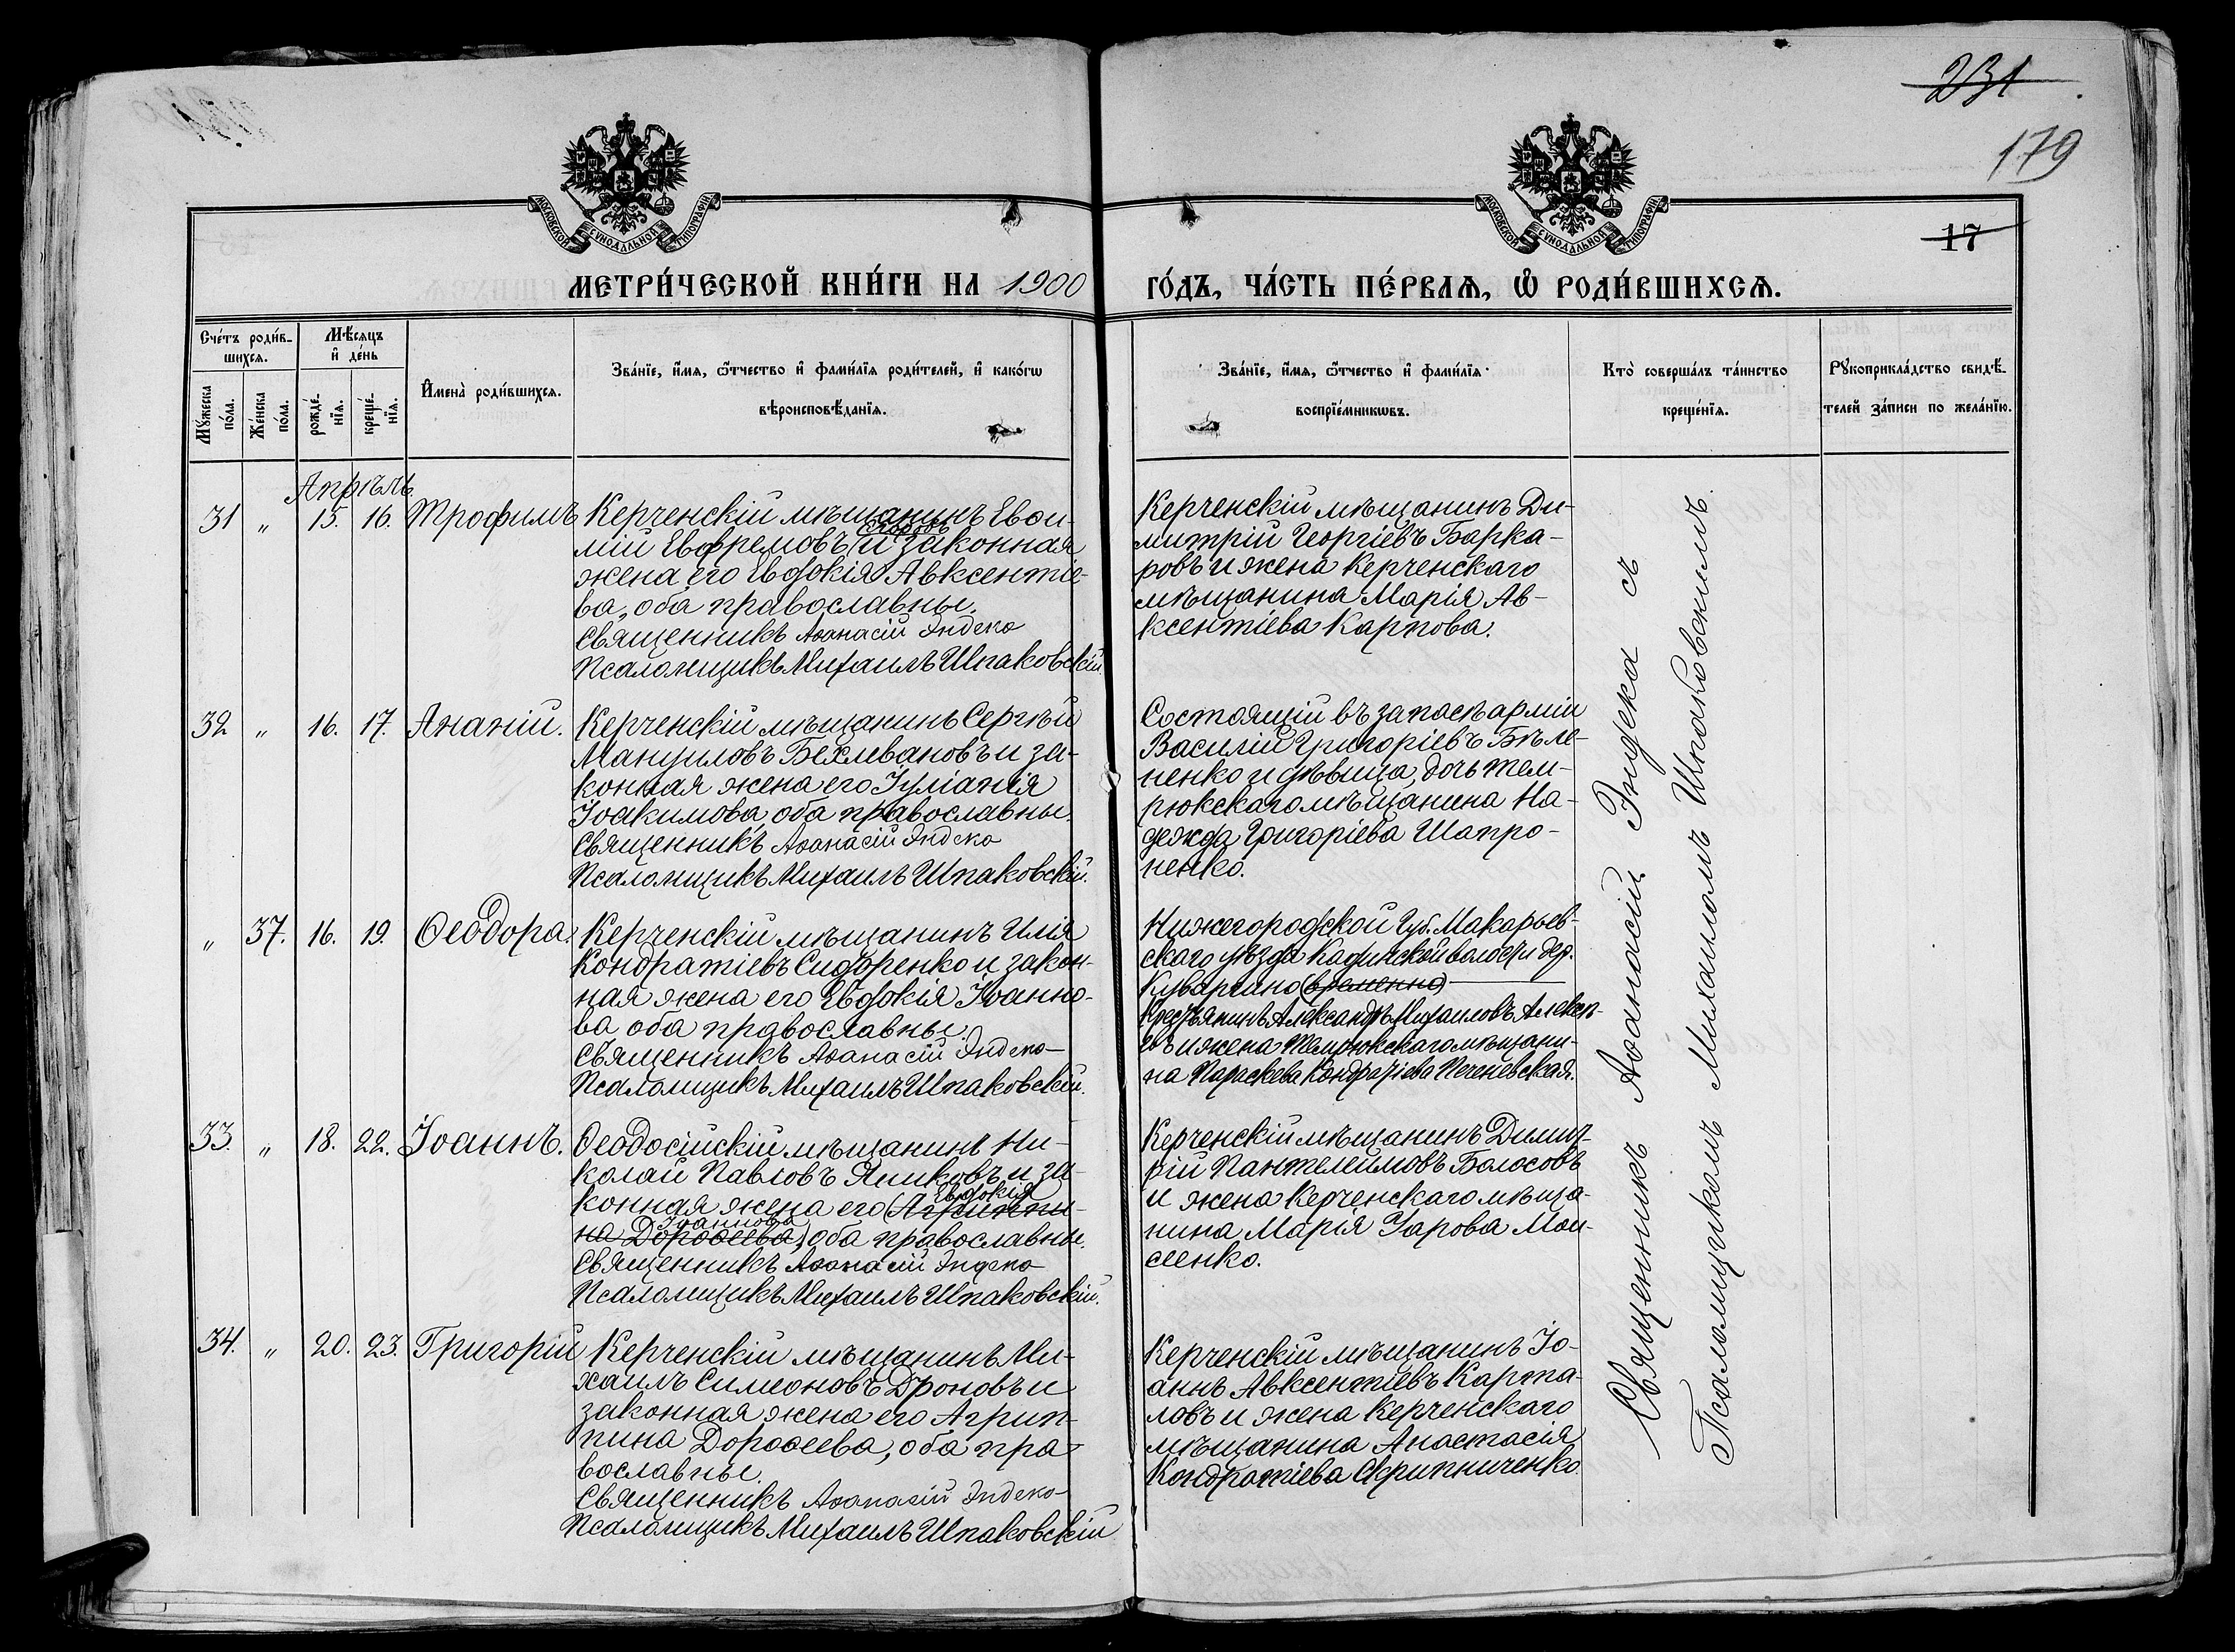 231
179
МОСКОВСКОЙ СѴНОДАЛЬНОЙ ТИПОГРАФІИ
МОСКОВСКОЙ СѴНОДАЛЬНОЙ ТИПОГРАФІИ
17
МЕТРИ́ЧЕСКОЙ КНИ́ГИ НА 1900
ГО́ДЪ, ЧА́СТЬ ПЕ́РВАѦ, Ѽ РОДИ́ВШИХСѦ.
Сче́тъ роди́в-
шихсѧ.
Мѣ́сѧцъ
и҆ де́нь
Мꙋ́жеска
по́ла.
Же́нска
по́ла.
рожде́-
нїѧ.
креще́-
нїѧ.
И҆мена̀ роди́вшихсѧ.
Зва́нїе, и҆́мѧ, ѻ҆́тчество и҆ фами́лїѧ роди́телей, и҆ како́гѡ
вѣроисповѣ́данїѧ.
Зва́нїе, и҆́мѧ, ѻ҆́тчество и҆ фами́лїѧ
воспрїе́мникѡвъ.
Кто̀ соверша́лъ та́инство
креще́нїѧ.
Рꙋкоприкла́дство свидѣ́-
телей за́писи по жела́нїю.
Апрѣль.
31 „ 15. 16. Трофимъ
Керченскій мѣщанинъ Евѳи-
мій Евфремовъ и законная
жена его Евдокія Авксентіе-
ва, оба православны.
Священникъ Аѳанасій Индеко
Псаломщикъ Михаилъ Шпаковскій.
Керченскій мѣщанинъ Ди-
митрій Георгіевъ Барка-
ровъ и жена Керченскаго
мѣщанина Марія Ав-
ксентіева Карпова.
32 „ 16. 17. Ананій.
Керченскій мѣщанинъ Сергѣй
Мануиловъ Бехливановъ и за-
конная жена его Іуліанія
Іоакимова оба православны.
Священникъ Аѳанасій Индеко
Псаломщикъ Михаилъ Шпаковскій.
Состоящій въ запасѣ арміи
Василій Григоріевъ Бѣле-
ненко и дѣвица, дочь тем-
рюкскаго мѣщанина На-
дежда Григоріева Шапро-
ненко.
„ 37. 16. 19. Ѳеодора.
Керченскій мѣщанинъ Илія
Кондратіевъ Сидоренко и закон-
ная жена его Евдокія Іоанно-
ва оба православны.
Священникъ Аѳанасій Индеко
Псаломщикъ Михаилъ Шпаковскій.
Нижегородской Губ. Макарьев-
скаго уѣзда волости дер.
(временно)
Крестьянинъ Александръ Михаиловъ
и жена Темрюкскаго мѣщани-
на Параскева Кондратіева Печеневская.
33. „ 18. 22. Іоаннъ.
Ѳеодосійскій мѣщанинъ Ни-
колай Павловъ Яшковъ и за-
конная жена его (Агриппи- Евдокія
на Дороѳеева) Іоаннова, оба православны.
Священникъ Аѳанасій Индеко
Псаломщикъ Михаилъ Шпаковскій.
Керченскій мѣщанинъ Димит-
рій Пантелеимовъ Болосовъ
и жена Керченскаго мѣща-
нина Марія Уарова Мои-
сеенко.
34. „ 20. 23. Григорій
Керченскій мѣщанинъ Ми-
хаилъ Симеоновъ Дроновъ и
законная жена его Агрип-
пина Дороѳеева, оба пра-
вославны.
Священникъ Аѳанасій Индеко
Псаломщикъ Михаилъ Шпаковскій
Керченскій мѣщанинъ Іо-
аннъ Авксентіевъ Карта-
ловъ и жена Керченскаго
мѣщанина Анастасія
Кондратіева Скрипниченко.
Священникъ Аѳанасій Индека съ
Псаломщикомъ Михаиломъ Шпаковскимъ.